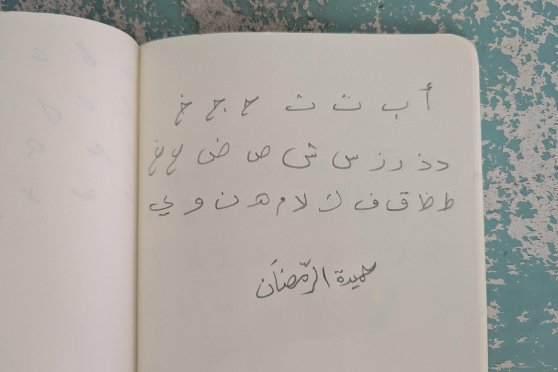 أ ب ت ث ح ج خ
د ذ ر ز س ش ص ض ع غ
ط ظ ق ف ك ل ا م ه ن و ي
حميدة الرّمضَان